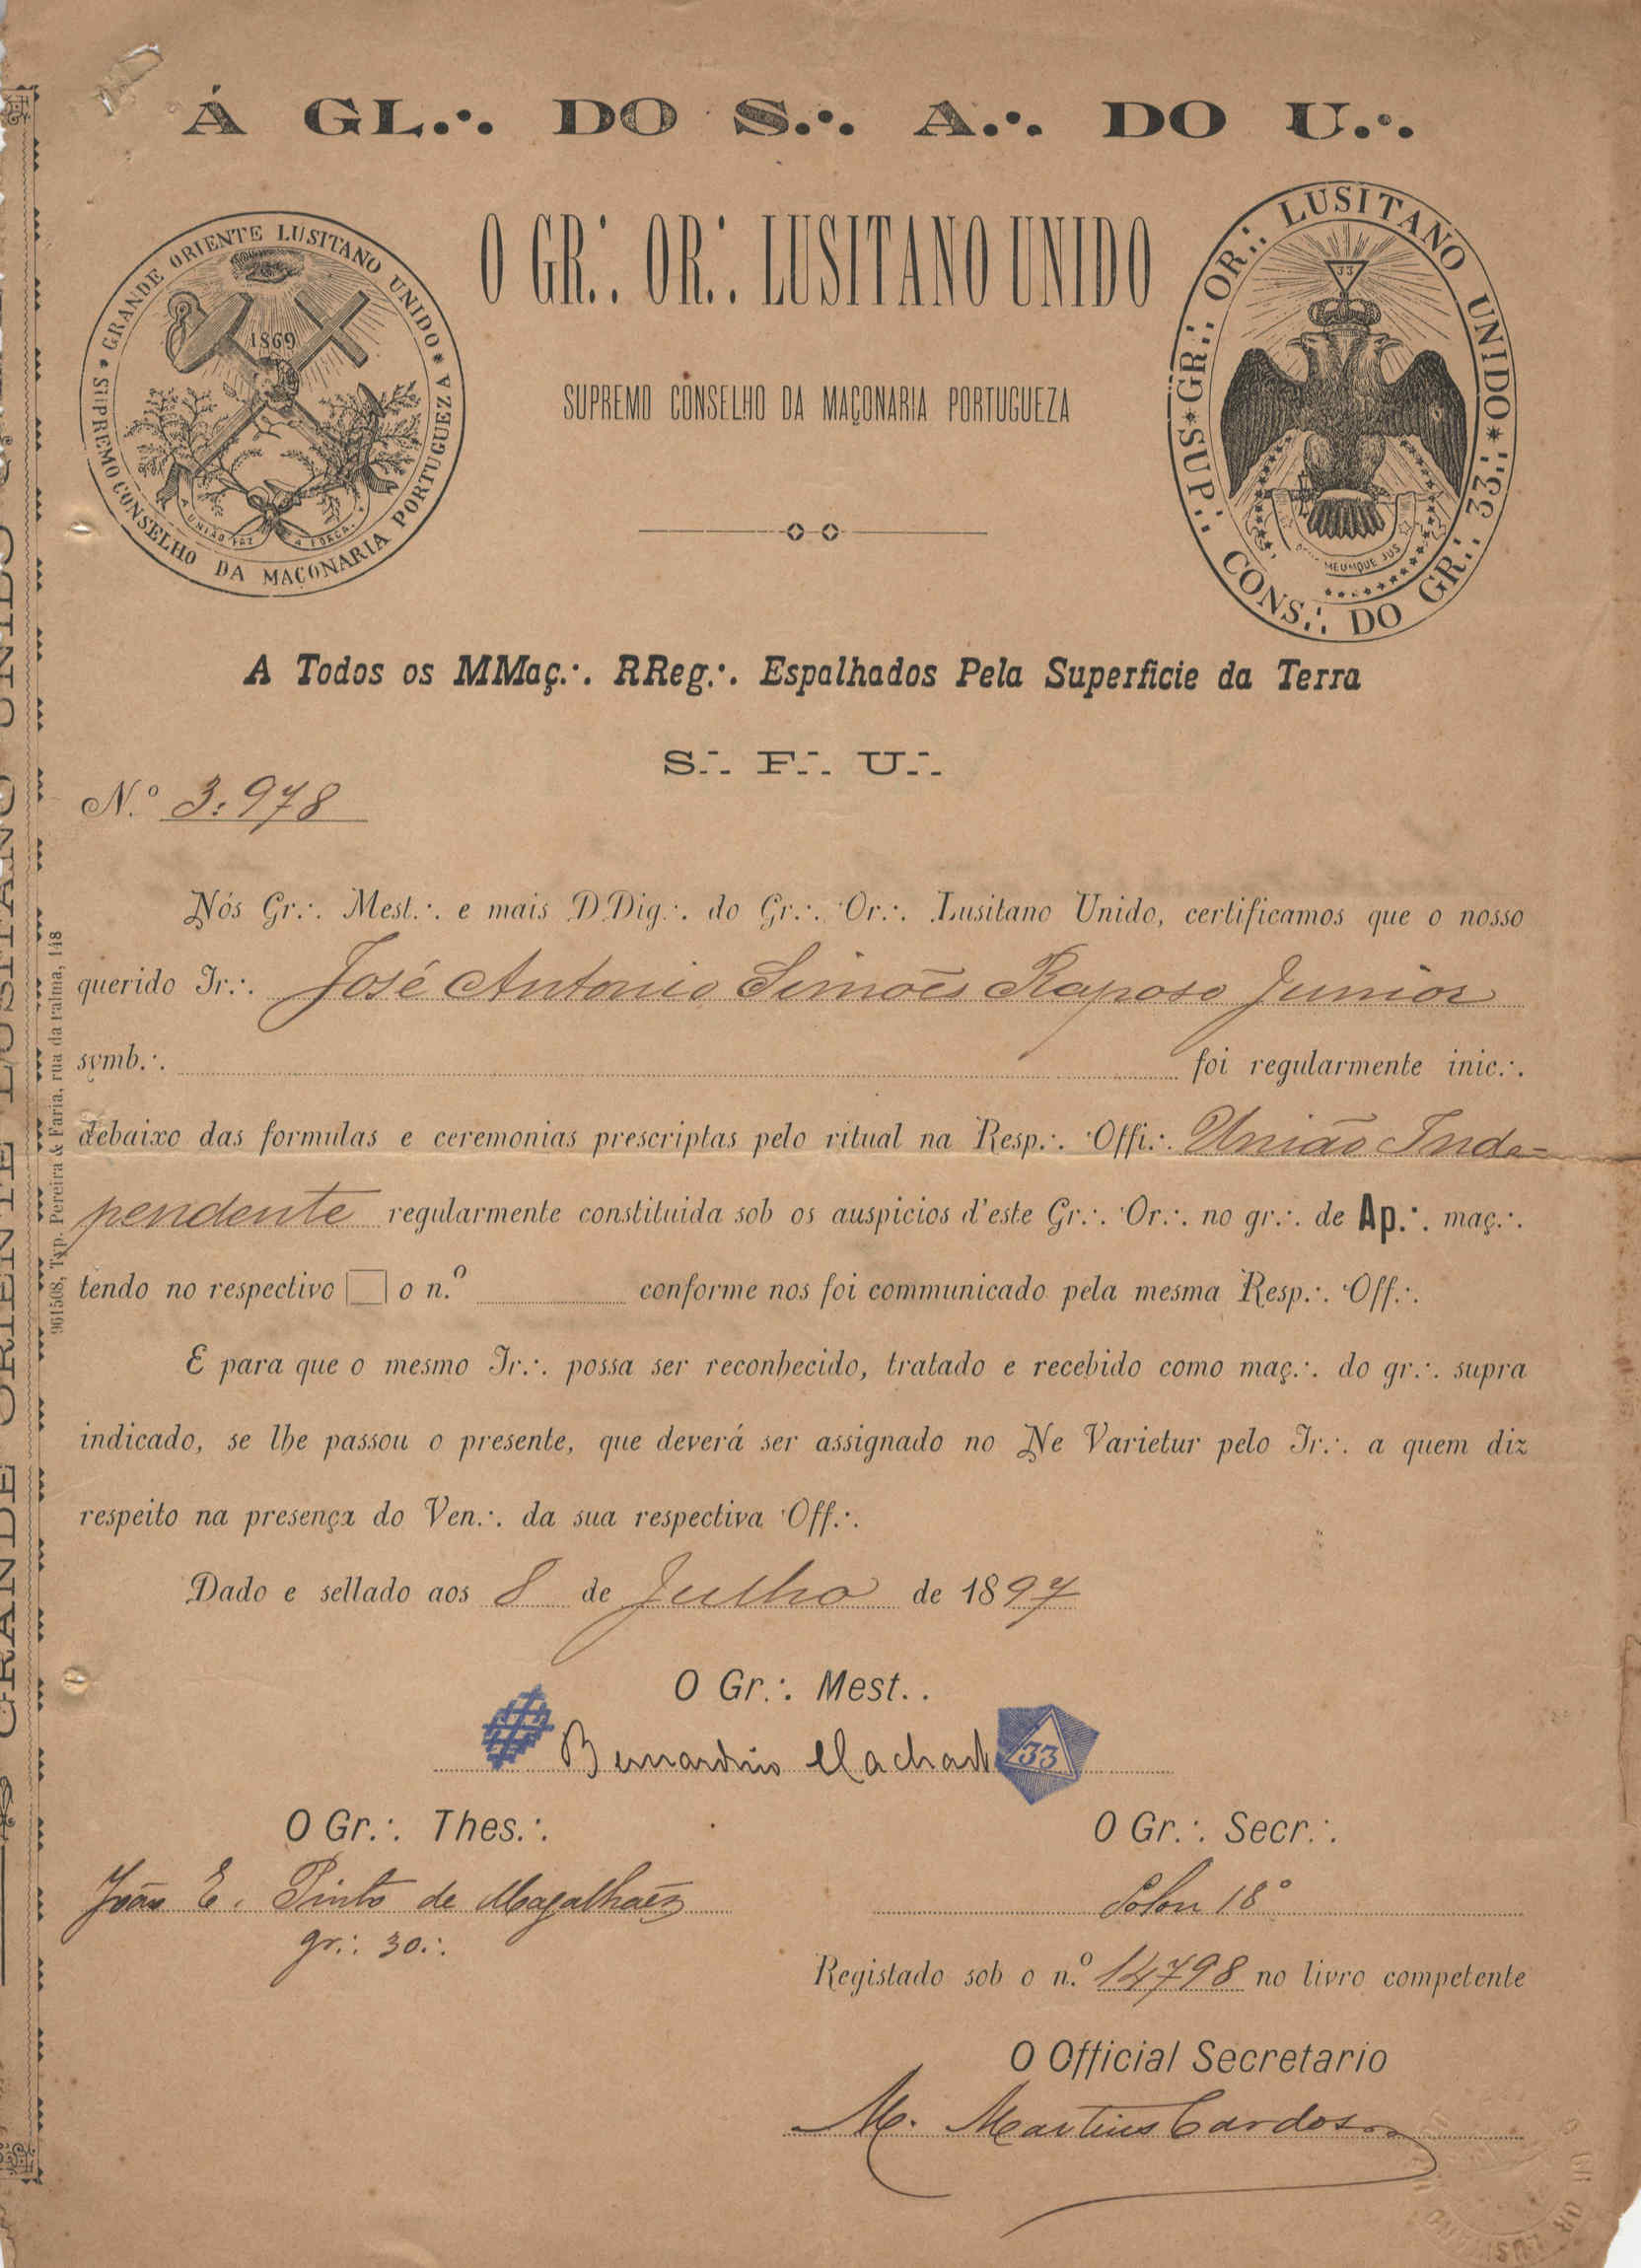 Á GL.∙. DO S.∙. A.∙. DO U.∙.
GRANDE ORIENTE LUSITANO UNIDO * SUPREMO CONSELHO DA MAÇONARIA PORTUGUEZA *
1869
A UNIÃO FAZ A FORÇA.
O GR.∙. OR.∙. LUSITANO UNIDO
SUPREMO CONSELHO DA MAÇONARIA PORTUGUEZA
GR.∙. OR.∙. LUSITANO UNIDO * SUP.∙. CONS.∙. DO GR.∙. 33.∙. *
33
MEUMQUE JUS
A Todos os MMaç.∙. RReg.∙. Espalhados Pela Superficie da Terra
S.∙. F.∙. U.∙.
N.º 3:978
Nós Gr.∙. Mest.∙. e mais DDig.∙. do Gr.∙. Or.∙. Lusitano Unido, certificamos que o nosso
querido Ir.∙. José Antonio Simões Raposo Junior
symb.∙. foi regularmente inic.∙.
debaixo das formulas e ceremonias prescriptas pelo ritual na Resp.∙. Offi.∙. União Inde=
pendente regularmente constituida sob os auspicios d'este Gr.∙. Or.∙. no gr.∙. de Ap.∙. maç.∙.
tendo no respectivo □ o n.º conforme nos foi communicado pela mesma Resp.∙. Off.∙.
E para que o mesmo Ir.∙. possa ser reconhecido, tratado e recebido como maç.∙. do gr.∙. supra
indicado, se lhe passou o presente, que deverá ser assignado no Ne Varietur pelo Ir.∙. a quem diz
respeito na presença do Ven.∙. da sua respectiva Off.∙.
Dado e sellado aos 8 de Julho de 1897
O Gr.∙. Mest. .
Bernardino Machado
33
O Gr.∙. Thes.∙.
João E. Pinto de Magalhães
gr.∙. 30.∙.
O Gr.∙. Secr.∙.
Solon 18º
Registado sob o n.º 14798 no livro competente
O Official Secretario
M. Martins Cardoso
961508, Typ. Pereira & Faria, rua da Palma, 148
GRANDE ORIENTE LUSITANO UNIDO